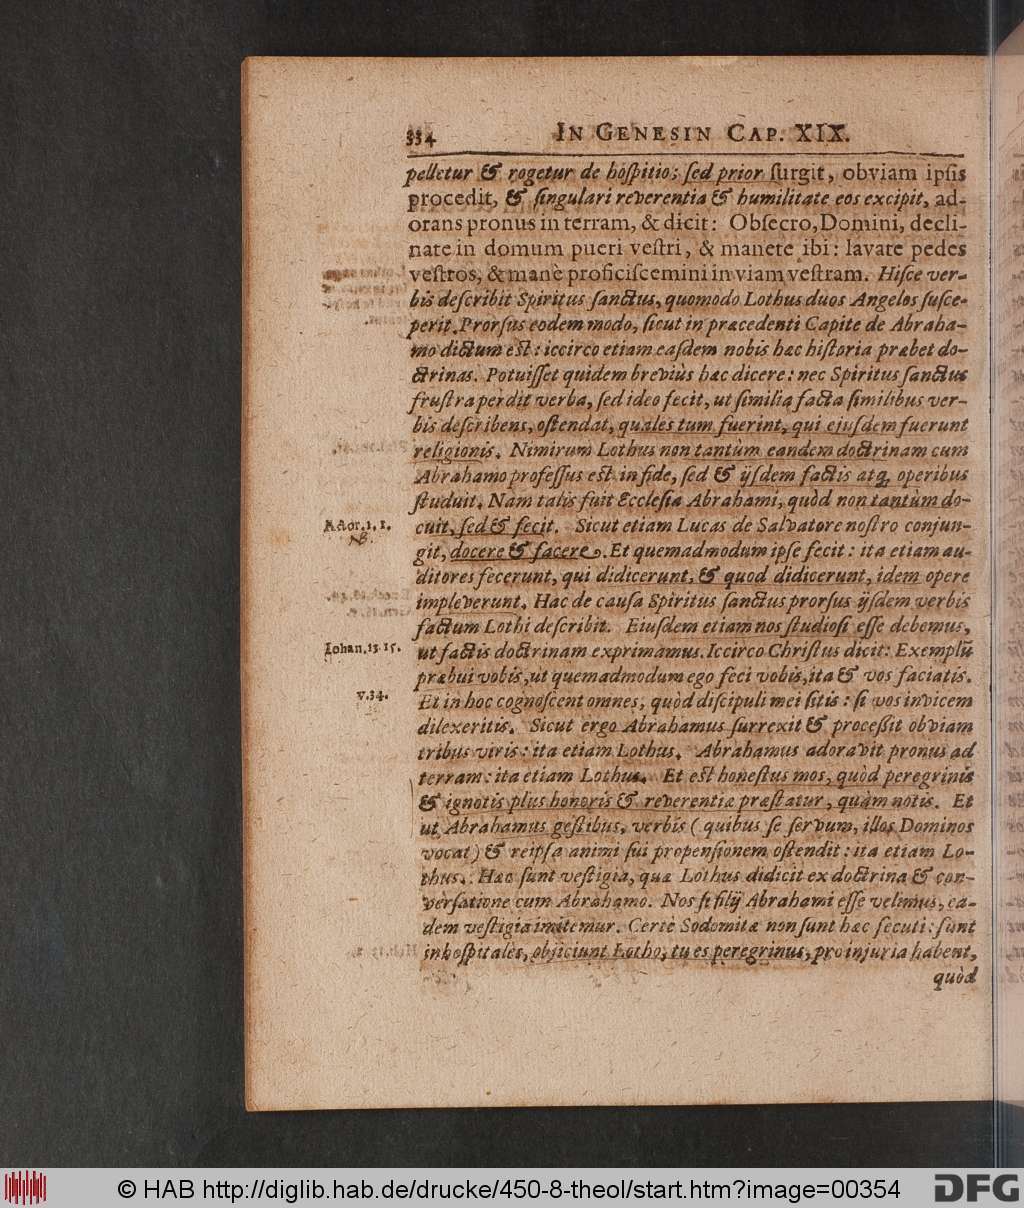 334 IN GENESIN CAP. XIX.
pelletur & rogetur de hoſpitio; ſed prior ſurgit, obviam ipſis
procedit, & ſingulari reverentia & humilitate eos excipit, ad-
orans pronus in terram, & dicit: Obſecro, Domini, decli-
nate in domum pueri veſtri, & manete ibi: lavate pedes
veſtros, & manè proficiſcemini in viam veſtram. Hiſce ver-
bis deſcribit Spiritus ſanctus, quomodo Lothus duos Angelos ſuſce-
perit. Prorſus eodem modo, ſicut in præcedenti Capite de Abraha-
mo dictum eſt: iccirco etiam eaſdem nobis hæc hiſtoria præbet do-
ctrinas. Potuiſſet quidem breviùs hæc dicere: nec Spiritus ſanctus
fruſtra perdit verba, ſed ideo fecit, ut ſimilia facta ſimilibus ver-
bis deſcribens, oſtendat, quales tum fuerint, qui ejuſdem fuerunt
religionis. Nimirum Lothus non tantùm eandem doctrinam cum
Abrahamo profeſſus eſt in fide, ſed & ijſdem factis atq; operibus
ſtuduit. Nam talis fuit Eccleſia Abrahami, quòd non tantùm do-
Actor. 1, 1.
cuit, ſed & fecit. Sicut etiam Lucas de Salvatore noſtro conjun-
NB.
git, docere & facere. Et quemadmodum ipſe fecit: ita etiam au-
ditores fecerunt, qui didicerunt, & quod didicerunt, idem opere
impleverunt. Hac de cauſa Spiritus ſanctus prorſus ijſdem verbis
factum Lothi deſcribit. Eiuſdem etiam nos ſtudioſi eſſe debemus,
Iohan. 13. 15.
ut factis doctrinam exprimamus. Iccirco Chriſtus dicit: Exemplū
præbui vobis, ut quemadmodum ego feci vobis, ita & vos faciatis.
v. 34.
Et in hoc cognoſcent omnes, quòd diſcipuli mei ſitis: ſi vos invicem
dilexeritis. Sicut ergo Abrahamus ſurrexit & proceſſit obviam
tribus viris: ita etiam Lothus. Abrahamus adoravit pronus ad
terram: ita etiam Lothus. Et eſt honeſtus mos, quòd peregrinis
& ignotis plus honoris & reverentiæ præſtatur, quàm notis. Et
ut Abrahamus geſtibus, verbis (quibus ſe ſervum, illos Dominos
vocat) & reipſa animi ſui propenſionem oſtendit: ita etiam Lo-
thus. Hæc ſunt veſtigia, quæ Lothus didicit ex doctrina & con-
verſatione cum Abrahamo. Nos ſi filij Abrahami eſſe velimus, ea-
dem veſtigia imitemur. Certè Sodomitæ non ſunt hæc ſecuti: ſunt
inhoſpitales, objiciunt Lotho, tu es peregrinus, pro injuria habent,
quòd
© HAB http://diglib.hab.de/drucke/450-8-theol/start.htm?image=00354
DFG